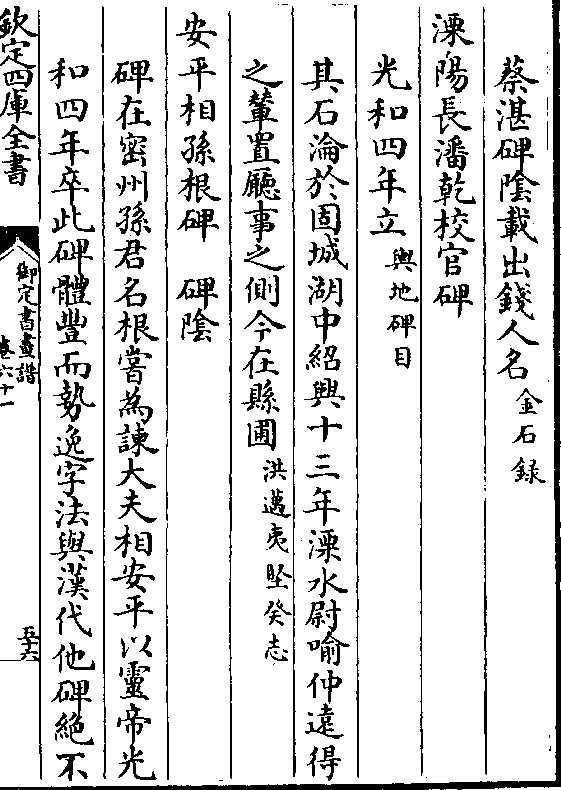 蔡湛碑陰載出錢人名金石録
溧陽長潘乾校官碑
光和四年立輿地碑目
其石淪於固城湖中紹興十三年溧水尉喻仲遠得
之輦置廳事之側今在縣圃洪邁夷堅癸志
安平相孫根碑　碑陰
碑在密州孫君名根嘗為諫大夫相安平以靈帝光
和四年卒此碑體豐而勢逸字法與漢代他碑絶不
欽定四庫全書
御定書畫譜
卷六十一
五十六